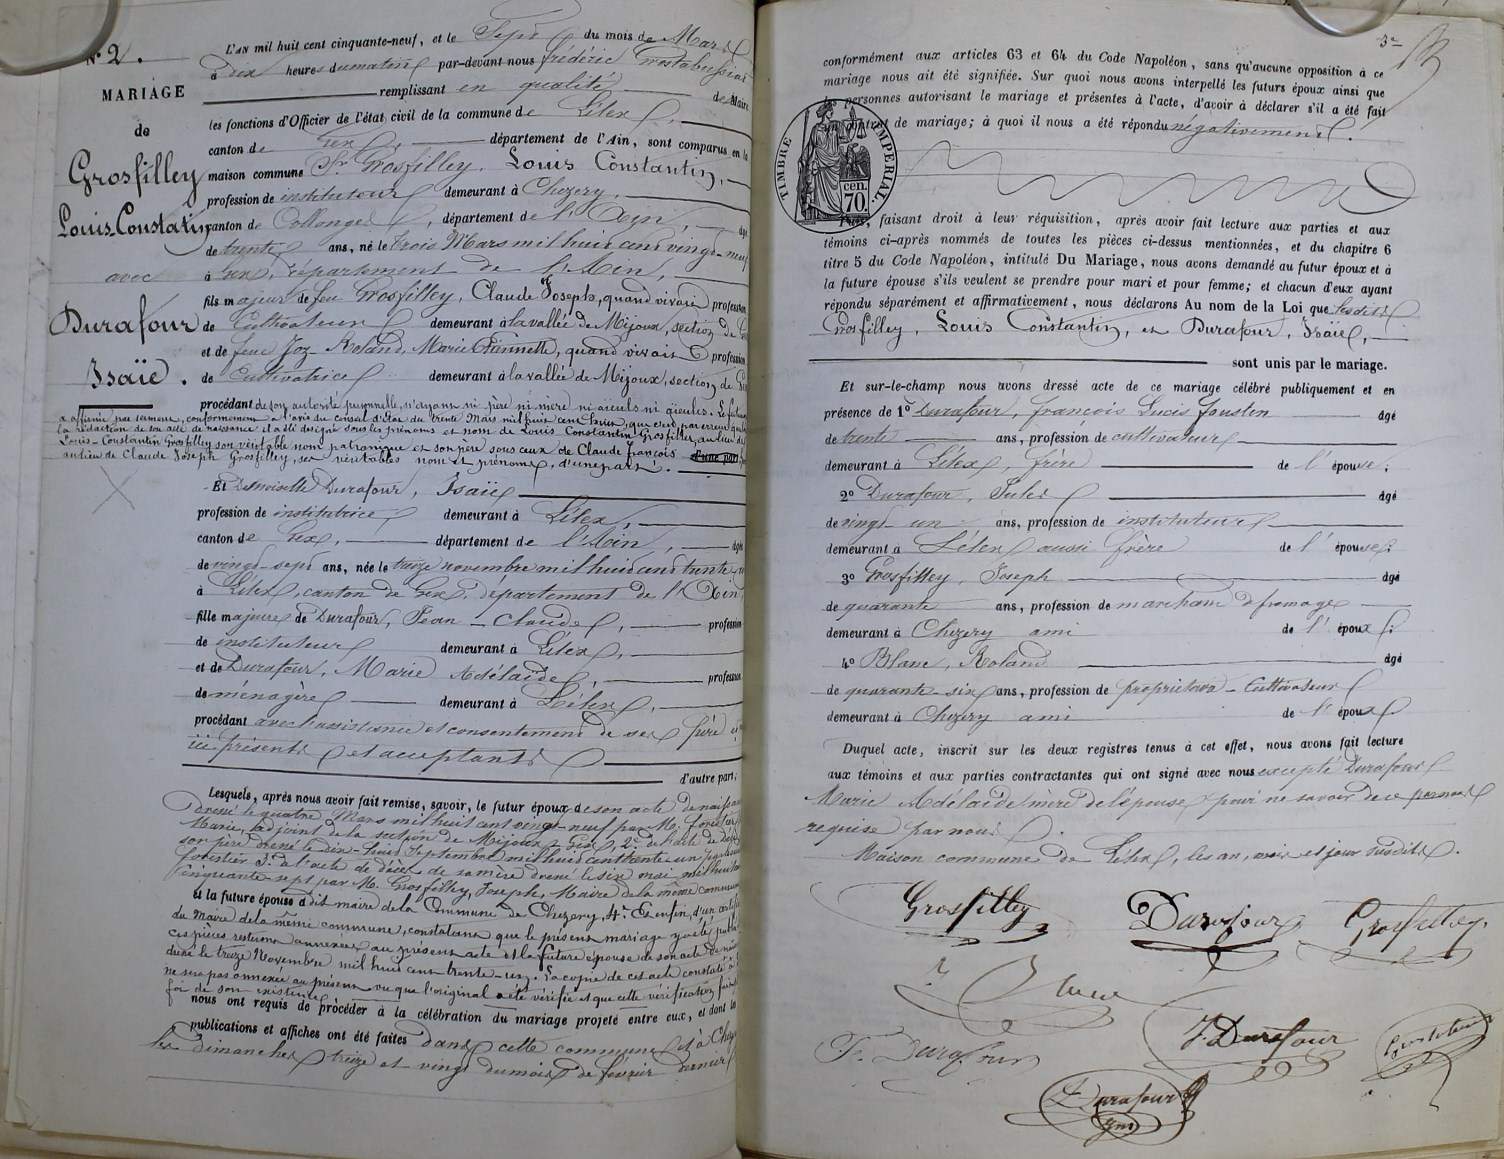 N° 2.
MARIAGE
de
Grosfilley
Louis-Constatin
avec
Durafour
Isaïe.
L'AN mil huit cent cinquante-neuf, et le Sept du mois de Mars
à dix heures du matin par-devant nous frédéric
remplissant en qualité de Maire
les fonctions d'Officier de l'état civil de la commune de Lélex,
canton de Gex, département de l'Ain, sont comparus en la
maison commune Sr. Grosfilley, Louis Constantin,
profession de instituteur demeurant à Chezery,
canton de Collonges, département de l'Ain, âgé
de trente ans, né le trois Mars mil huit cent vingt-neuf
à Gex, département de l'Ain,
fils majeur de feu Grosfilley, Claude Joseph, quand vivait profession
de Cultivateur demeurant à la vallée de Mijoux, section de
et de feue Joz-Roland, Marie Pannette, quand vivait profession
de Cultivatrice demeurant à la vallée de Mijoux, section de
procédant de son autorité personnelle, n'ayant ni père ni mère ni aïeuls ni aïeules. Le futur
a affirmé par serment, conformément à l'avis du conseil d'état du trente Mars mil huit cent huit, que c'est par erreur que
la rédaction de son acte de naissance il a été désigné sous les prénoms et nom de Louis Constantin Grosfilley, au lieu de
Louis-Constantin Grosfilley son véritable nom patronique et son père sous ceux de Claude François
au lieu de Claude Joseph Grosfilley, ses véritables nom et prénoms, d'une part.
Et Demoiselle Durafour, Isaïe
profession de institutrice demeurant à Lélex,
canton de Gex, département de l'Ain, âgé
de vingt-sept ans, née le treize novembre mil huit cent trente
à Lélex, canton de Gex, département de l'Ain
fille majeure de Durafour, Jean-Claude, profession
de instituteur demeurant à Lélex,
et de Durafour, Marie Adélaïde, profession
de ménagère demeurant à Lélex,
procédant avec l'assistance et consentement de ses père et
ici présents et acceptants
d'autre part;
Lesquels, après nous avoir fait remise, savoir, le futur époux de son acte de naissance
dressé le quatre Mars mil huit cent vingt-neuf par M. forestier
Marie, adjoint de la section de Mijoux-Gex, 2° de l'acte de décès
son père dressé le dix-huit Septembre mil huit cent trente un par
forestier 3° de l'acte de décès de sa mère dressé le six mai mil huit cent
cinquante-sept par M. Grosfilley, Joseph, Maire de la même commune
et la future épouse dit maire de la Commune de Chezery, 4° Et enfin, d'un certificat
du Maire de la même commune, constatant que le présent mariage y a été publié
ces pièces resteront annexées au présent acte et la future épouse de son acte de
dressé le treize Novembre mil huit cent trente-un. La copie de cet acte constaté
ne sera pas annexée au présent vu que l'original a été vérifié et que cette vérification
foi de son existence
nous ont requis de procéder à la célébration du mariage projeté entre eux, et dont les
publications et affiches ont été faites dans cette commune et à Chezery
les dimanches treize et vingt du mois de février dernier
conformément aux articles 63 et 64 du Code Napoléon, sans qu'aucune opposition à ce
mariage nous ait été signifiée. Sur quoi nous avons interpellé les futurs époux ainsi que
les personnes autorisant le mariage et présentes à l'acte, d'avoir à déclarer s'il a été fait
un contrat de mariage; à quoi il nous a été répondu négativement.
TIMBRE IMPÉRIAL.
cen.
70.
faisant droit à leur réquisition, après avoir fait lecture aux parties et aux
témoins ci-après nommés de toutes les pièces ci-dessus mentionnées, et du chapitre 6
titre 5 du Code Napoléon, intitulé Du Mariage, nous avons demandé au futur époux et à
la future épouse s'ils veulent se prendre pour mari et pour femme; et chacun d'eux ayant
répondu séparément et affirmativement, nous déclarons Au nom de la Loi que lesdits
Grosfilley, Louis Constantin, et Durafour, Isaïe,
sont unis par le mariage.
Et sur-le-champ nous avons dressé acte de ce mariage célébré publiquement et en
présence de 1° Durafour, françois Lucis Joustin âgé
de trente ans, profession de cultivateur
demeurant à Lélex, frère de l'épouse;
2° Durafour, Jules âgé
de vingt-un ans, profession de instituteur
demeurant à Lélex aussi frère de l'épouse;
3° Grosfilley, Joseph âgé
de quarante ans, profession de marchand d fromages
demeurant à Chezery ami de l'époux;
4° Blanc, Roland âgé
de quarante-six ans, profession de propriétaire-Cultivateur
demeurant à Chezery ami de l'époux
Duquel acte, inscrit sur les deux registres tenus à cet effet, nous avons fait lecture
aux témoins et aux parties contractantes qui ont signé avec nous excepté Durafour
Marie Adélaïde mère de l'épouse, pour ne savoir de ce
requise par nous.
Maison commune de Lélex, les an, mois et jour susdits.
Grosfilley Durafour Grosfilley
Blanc
F. Durafour J. Durafour
Durafour